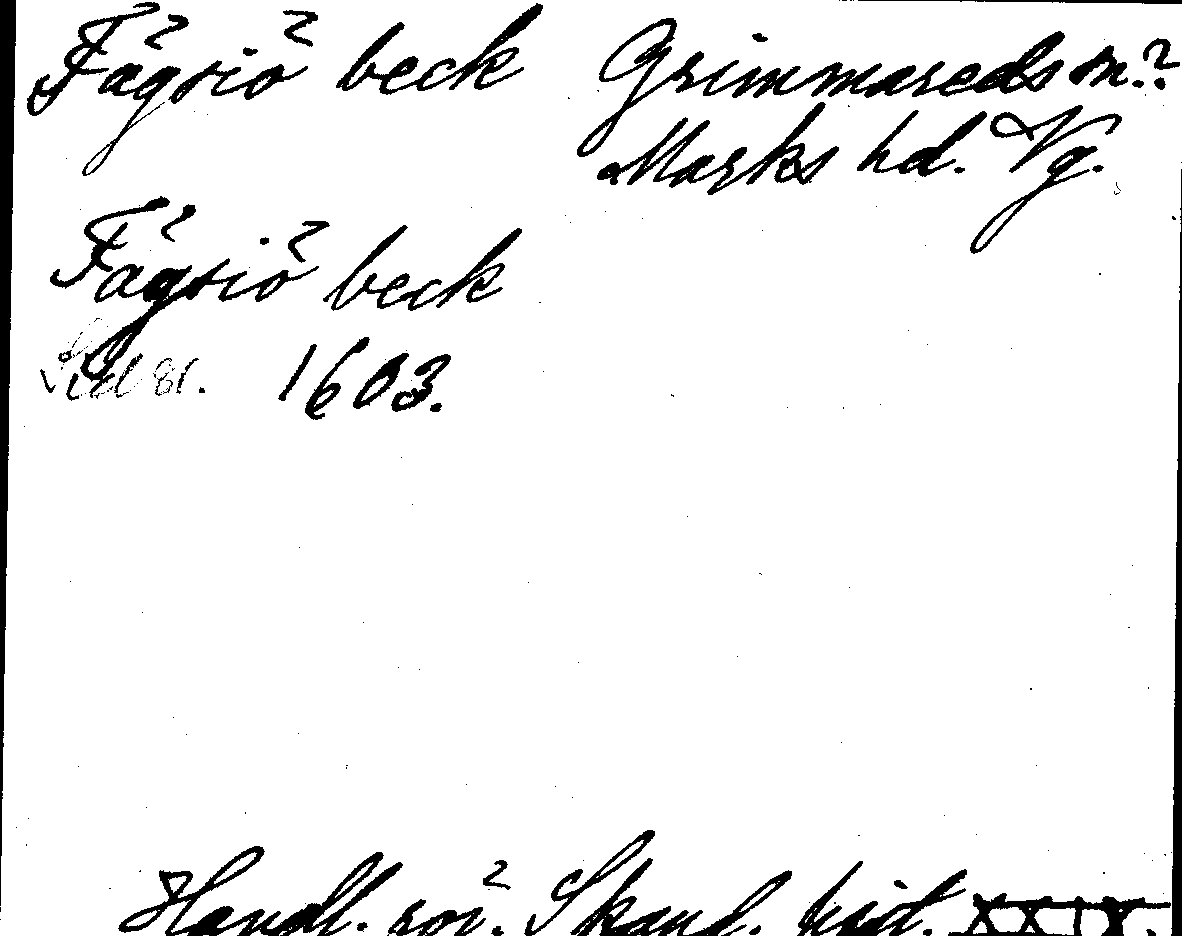 Fägsiö beck Grimmareds sn.?
Marks hd. Vg.
Fägsiö beck
Sid 81. 1603.
Handl. rör. Skand. hist. XXIX.